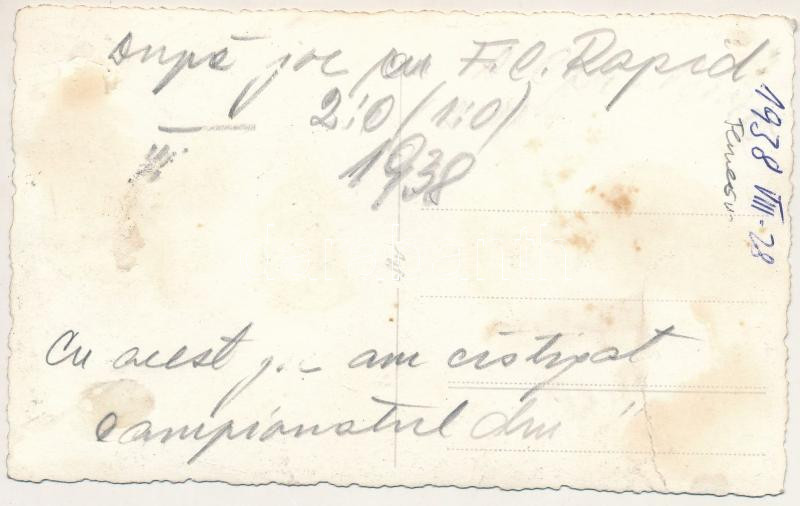 După joc cu F.C. Rapid
2:0 (1:0)
1938
Cu acest joc am cistigat
campionatul din "
1938 VIII-28